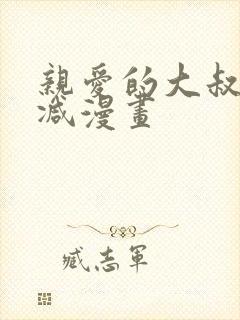 親愛的大叔
減漫畫
臧志軍